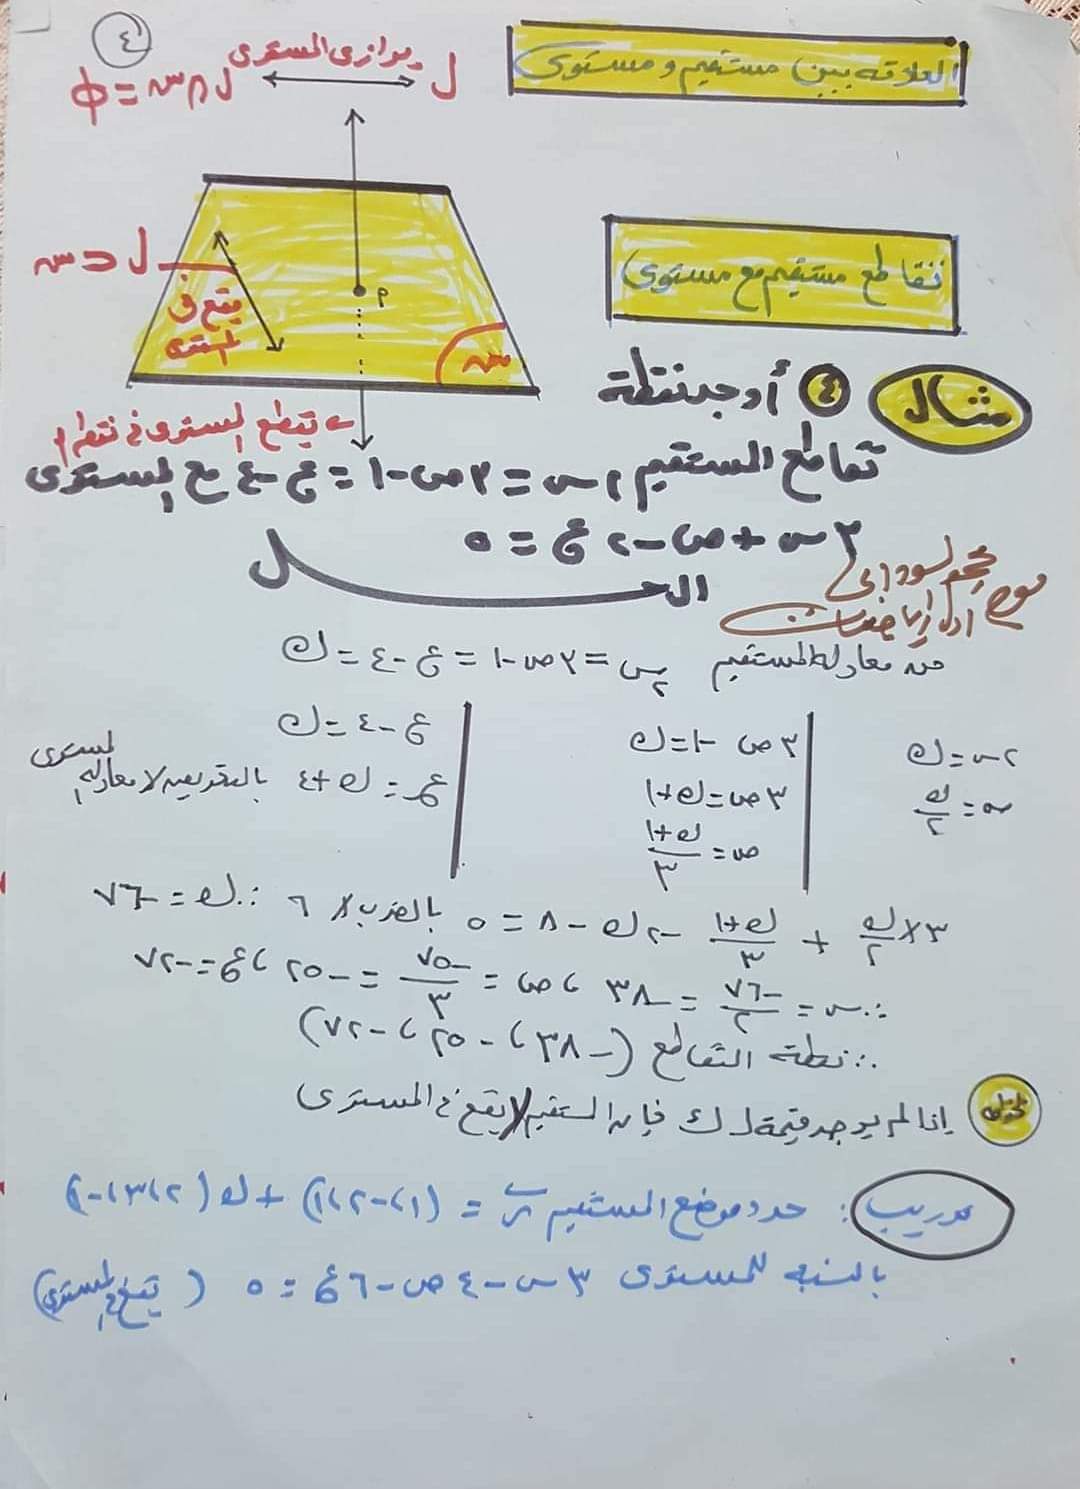 ٤
العلاقه بين مستقيم ومستوى
ل يوازى المستوى
ل ∩ س = φ
تقاطع مستقيم مع مستوى
ل ⊂ س
يقع فى
المستوى
م
س
يقطع المستوى فى نقطة م
مثال ٤ أوجد نقطة
تقاطع المستقيم ٢س = ٣ص - ١ = ع - ٤ مع المستوى
٣س + ص - ٢ع = ٥
الحل
من معادلة المستقيم ٢س = ٣ص - ١ = ع - ٤ = ك
٢س = ك
س = ك/٢
٣ص - ١ = ك
٣ص = ك + ١
ص = (ك + ١)/٣
ع - ٤ = ك
ع = ك + ٤
بالتعويض لا معادلة المستوى
٣ × ك/٢ + (ك + ١)/٣ - ٢ك - ٨ = ٥ بالضرب × ٦ ∴ ك = -٧٦
∴ س = -٧٦/٢ = -٣٨ ، ص = -٧٥/٣ = -٢٥ ، ع = -٧٢
∴ نقطة التقاطع (-٣٨ ، -٢٥ ، -٧٢)
إذا لم يوجد قيمة لـ ك فإن المستقيم لا يقع فى المستوى
تدريب : حدد موضع المستقيم ر = (١ ، -٢ ، ١) + ك (٢ ، ٣ ، -١)
بالنسبه للمستوى ٣س - ٤ص - ٦ع = ٥ (يقع فى المستوى)